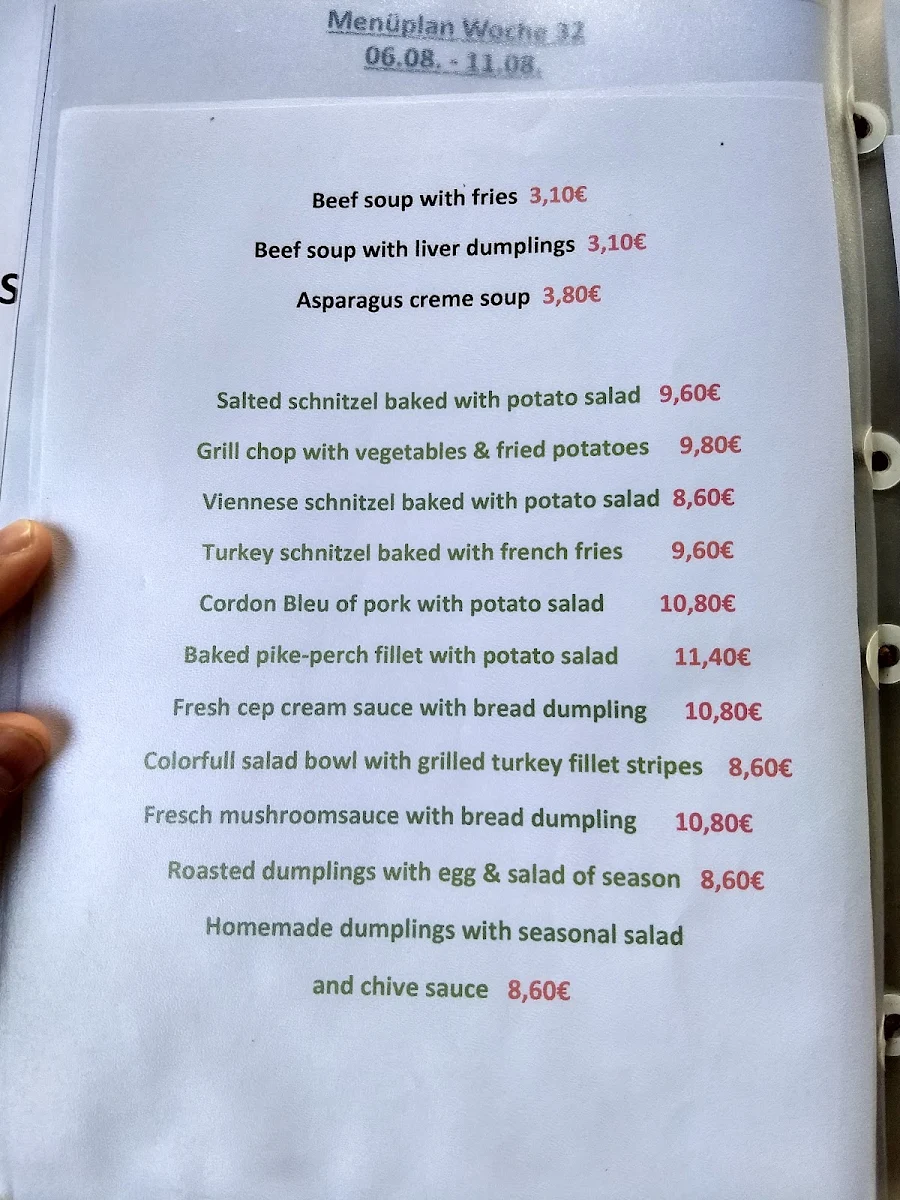 Menüplan Woche 32
06.08. - 11.08.
Beef soup with fries 3,10€
Beef soup with liver dumplings 3,10€
Asparagus creme soup 3,80€
Salted schnitzel baked with potato salad 9,60€
Grill chop with vegetables & fried potatoes 9,80€
Viennese schnitzel baked with potato salad 8,60€
Turkey schnitzel baked with french fries 9,60€
Cordon Bleu of pork with potato salad 10,80€
Baked pike-perch fillet with potato salad 11,40€
Fresh cep cream sauce with bread dumpling 10,80€
Colorfull salad bowl with grilled turkey fillet stripes 8,60€
Fresch mushroomsauce with bread dumpling 10,80€
Roasted dumplings with egg & salad of season 8,60€
Homemade dumplings with seasonal salad
and chive sauce 8,60€